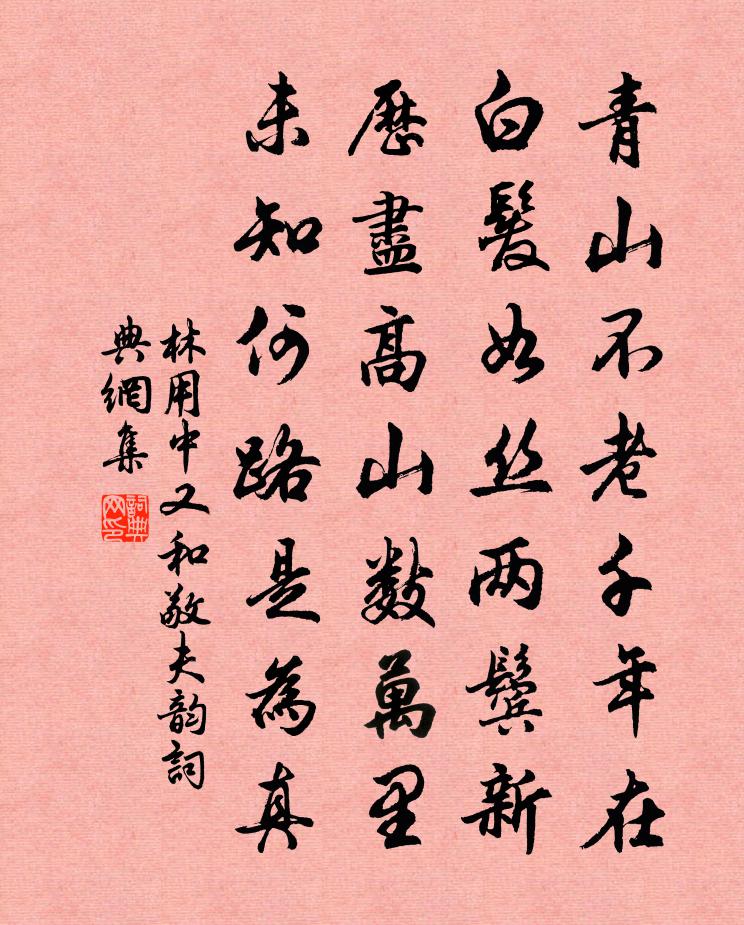 青山不老千年在
白髮如丝两鬢新
歷盡高山数萬里
未知何路是為真
林用中又和敬夫韵詞
典網集
詞典
网印